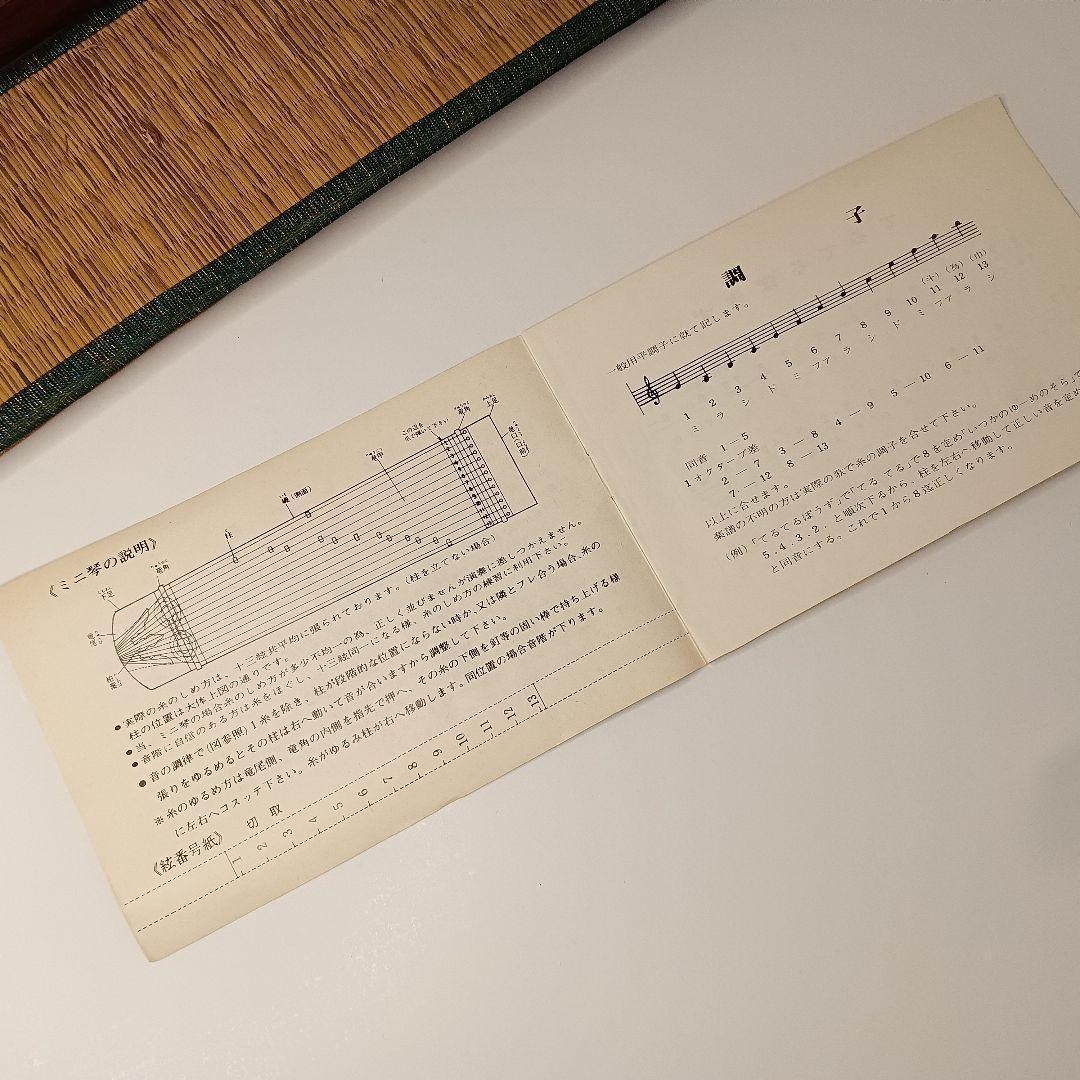 《ミニ琴の説明》
柱
磯(側面)
竜甲
この辺を
爪で弾いて下さい
竜角
上足
竜口(口形)
竜角
竜尾
●実際の糸のしめ方は、十三絃共平均に張られております。(柱を立てない場合)
柱の位置は大体上図の通りです。
●当、ミニ琴の場合糸のしめ方が多少不均一の為、正しく並びませんが演奏に差しつかえません。
●音階に自信のある方は糸をほぐし、十三絃同一になる様、糸のしめ方の練習に利用下さい。
●音の調律で(図参照)1糸を除き、柱が段階的な位置にならない時か、又は隣とフレ合う場合、糸の
張りをゆるめるとその柱は右へ動いて音が合いますから調整して下さい。
※糸のゆるめ方は竜尾側、竜角の内側を指先で押へ、その糸の下側を釘等の固い棒で持ち上げる様
に左右へコスッテ下さい。糸がゆるみ柱が右へ移動します。同位置の場合音階が下ります。
《絃番号紙》 切取
1 2 3 4 5 6 7 8 9 10 11 12 13
調子
一般用平調子に就て記します。
(斗) (為) (巾)
1 2 3 4 5 6 7 8 9 10 11 12 13
ミ ラ シ ド ミ ファ ラ シ ド ミ ファ ラ シ
同音 1—5
1オクターブ差
2—7 3—8 4—9 5—10 6—11
7—12 8—13
以上に合せます。
楽譜の不明の方は実際の歌で糸の調子を合せて下さい。
(例)「てるてるぼうず」で「てる てる」で8を定め「いつかのゆーめのそら」で
5.4.3.2.と順次下るから、柱を左右へ移動して正しい音を定め
と同音にする。これで1から8迄正しくなります。